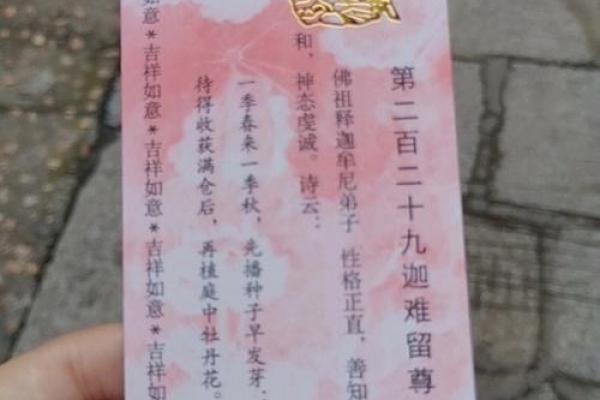 第二百二十九迦难留尊
佛祖释迦牟尼弟子 性格正直，善知
和，神态虔诚。诗云：
一季春来一季秋，先播种子早发芽。
待得收获满仓后，再植庭中牡丹花。
如意*吉祥如意*吉祥如意*吉祥如意*吉祥